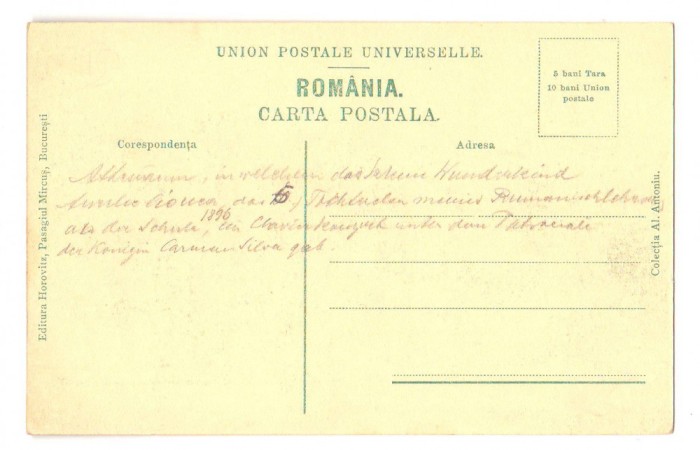 UNION POSTALE UNIVERSELLE.
ROMÂNIA.
CARTA POSTALA.
5 bani Tara
10 bani Union
postale
Corespondența
Adresa
Athenäum, in welchem das kleine Wunderkind
Aurelie Cionca, das Töchterchen meines Rumänischlehrers
an der Schule, 1896 ein Clavierkonzert unter dem Patronate
der Königin Carmen Silva gab.
Editura Horovitz, Pasagiul Mircuș, București
Colecția Al. Antoniu.